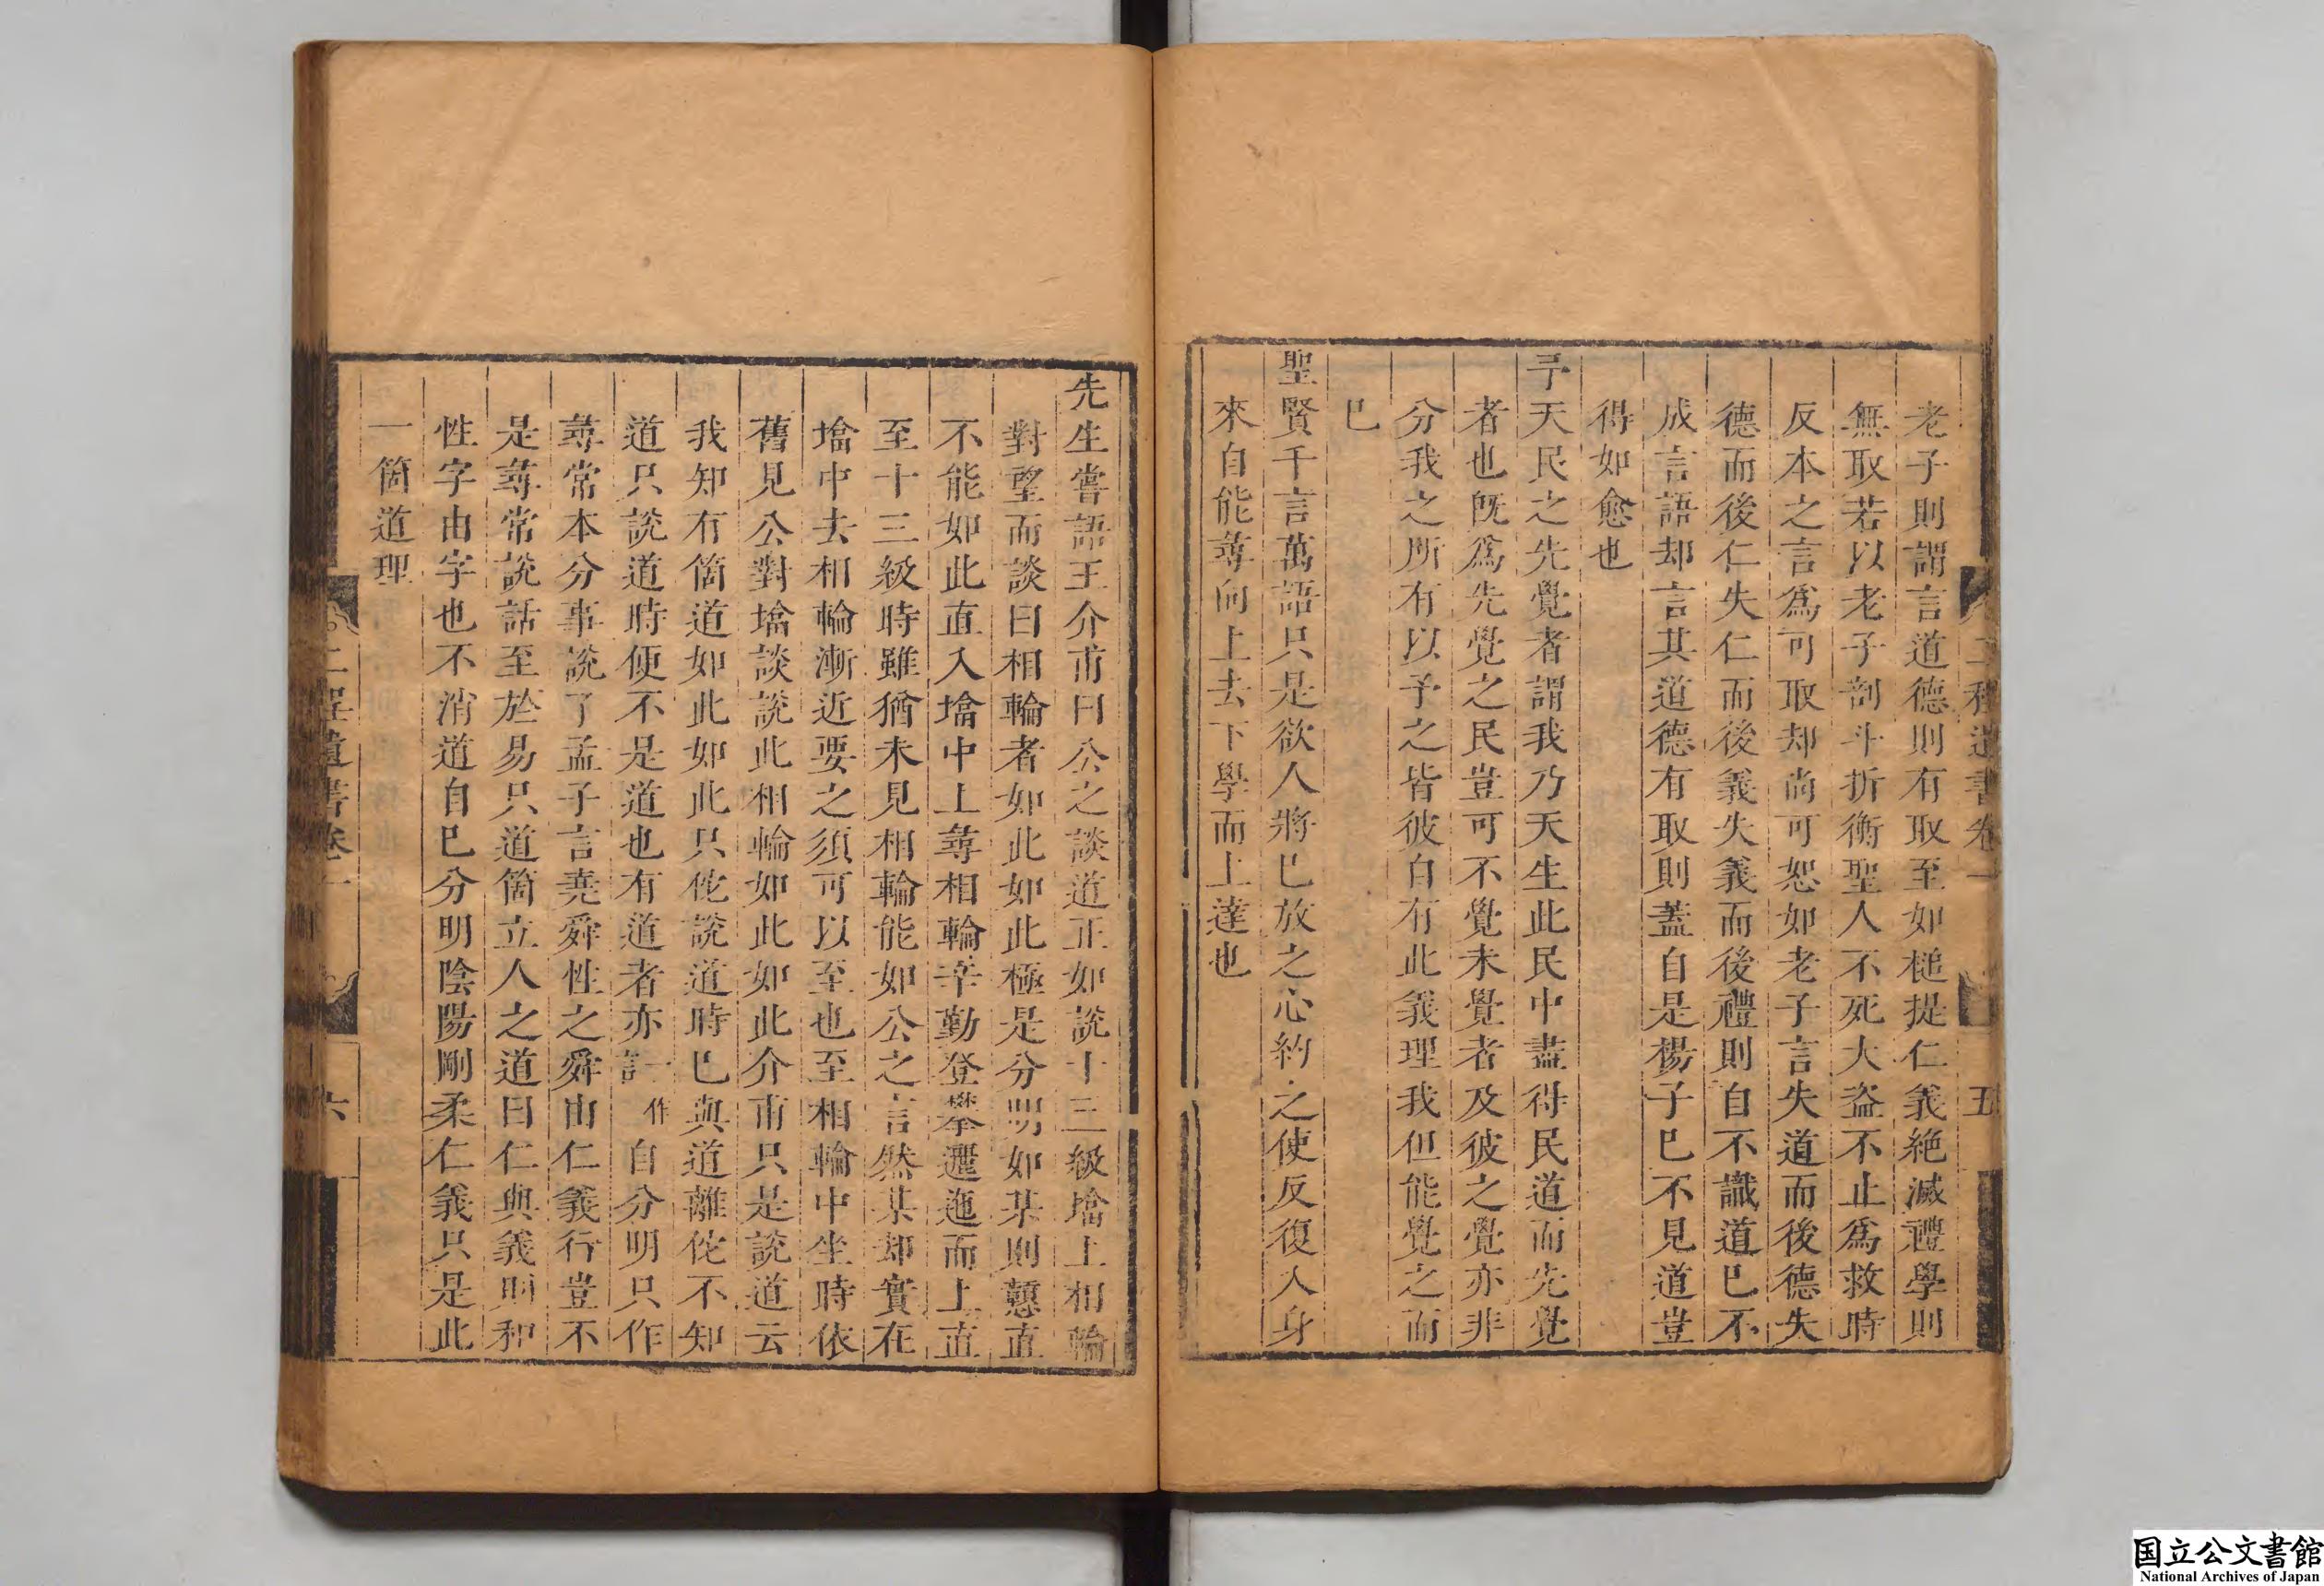 二程遺書卷一
五
老子則謂言道德則有取至如槌提仁義絶滅禮學則
無取若以老子剖斗折衡聖人不死大盗不止爲救時
反本之言爲可取却尚可恕如老子言失道而後德失
德而後仁失仁而後義失義而後禮則自不識道已不
成言語却言其道德有取則蓋自是楊子已不見道豈
得如愈也
予天民之先覺者謂我乃天生此民中盡得民道而先覺
者也既爲先覺之民豈可不覺未覺者及彼之覺亦非
分我之所有以予之皆彼自有此義理我但能覺之而
已
聖賢千言萬語只是欲人將已放之心約之使反復入身
來自能尋向上去下學而上達也
先生嘗語王介甫曰公之談道正如說十三級墖上相輪
對望而談曰相輪者如此如此極是分明如某則戇直
不能如此直入墖中上尋相輪辛勤登攀邐迤而上直
至十三級時雖猶未見相輪能如公之言然某却實在
墖中去相輪漸近要之須可以至也至相輪中坐時依
舊見公對墖談說此相輪如此如此介甫只是說道云
我知有箇道如此如此只佗說道時已與道離佗不知
道只說道時便不是道也有道者亦言一作自分明只作
尋常本分事說了孟子言堯舜性之舜由仁義行豈不
是尋常說話至於易只道箇立人之道曰仁與義則和
性字由字也不消道自已分明陰陽剛柔仁義只是此
一箇道理
二程遺書卷一
六
国立公文書館
National Archives of Japan